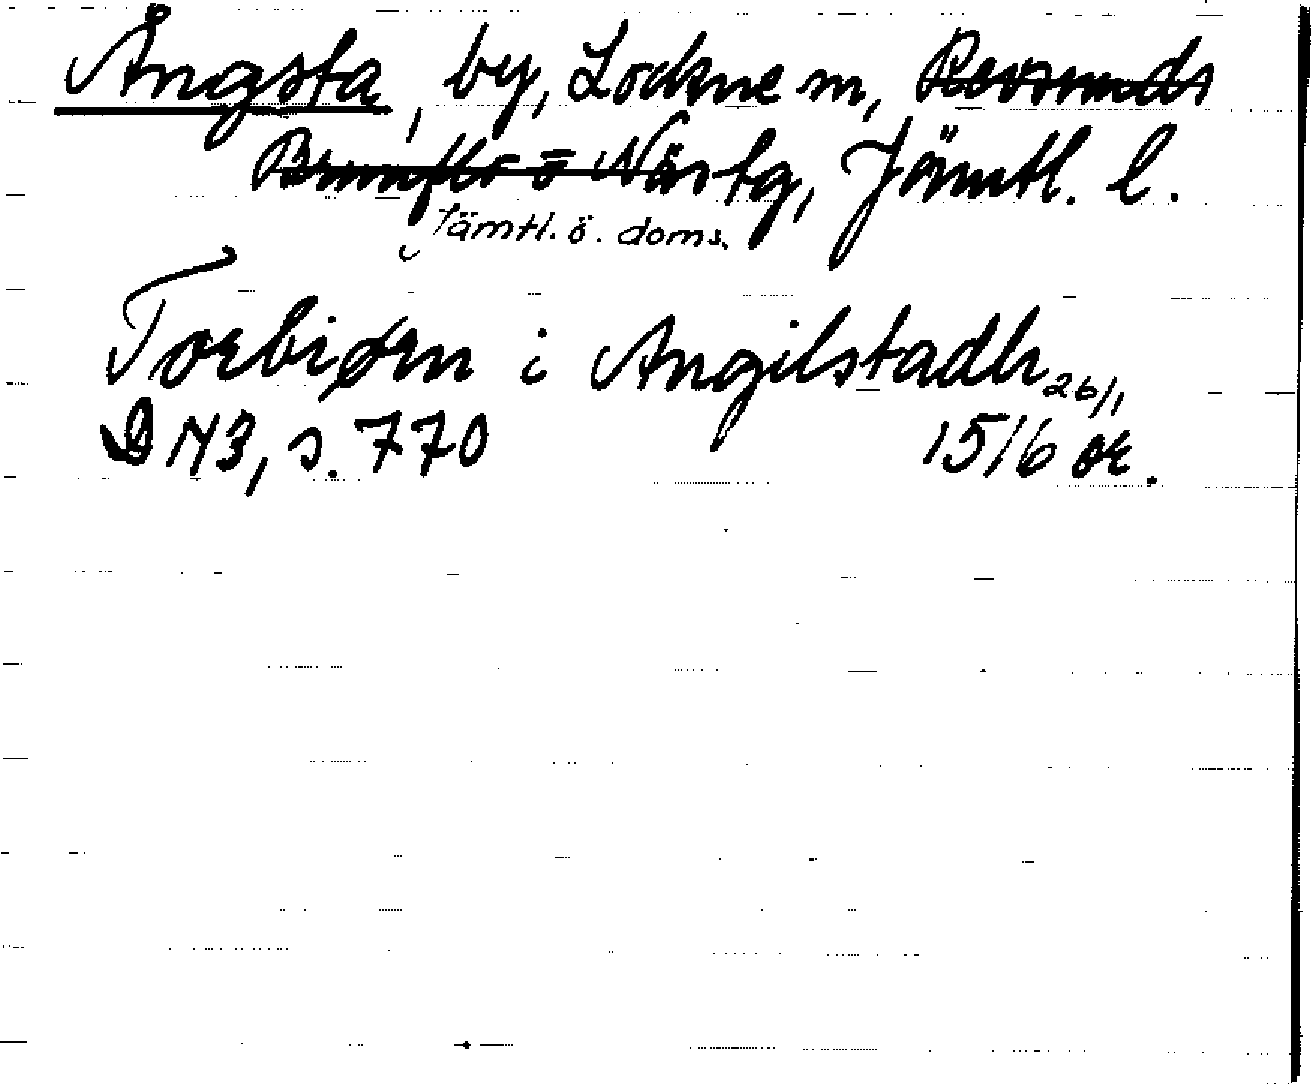 Ångsta, by, Lockne sn, Revsunds
Brunflo o Näs tg, Jämtl. l.
Jämtl. ö. doms.
Torbiørn i Angilstadh 26/1
DN3, s. 770 1516 or.